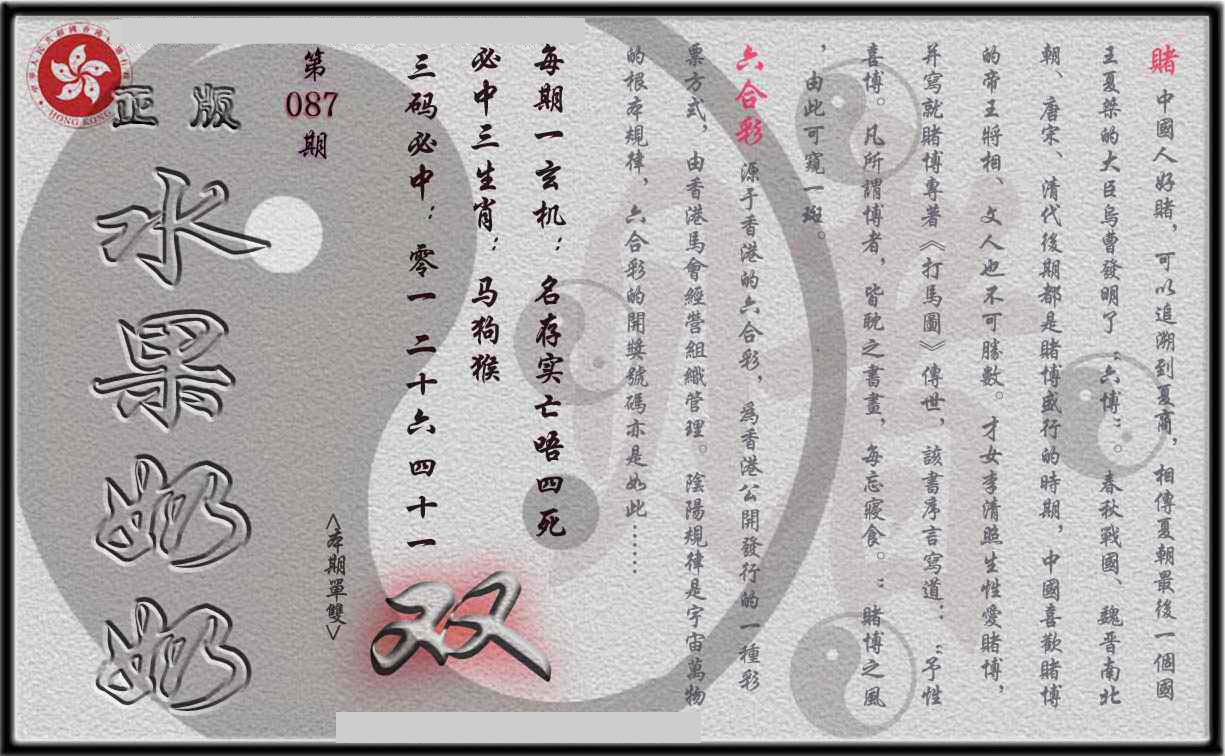 賭 中國人好賭，可以追溯到夏商，相傳夏朝最後一個國
王夏桀的大臣烏曹發明了“六博”。春秋戰國、魏晉南北
朝、唐宋、清代後期都是賭博盛行的時期，中國喜歡賭博
的帝王將相、文人也不可勝數。才女李清照生性愛賭博，
并寫就賭博專著《打馬圖》傳世，該書序言寫道：“予性
喜博。凡所謂博者，皆耽之書畫，每忘寢食。”賭博之風
，由此可窺一斑。
六合彩 源于香港的六合彩，為香港公開發行的一種彩
票方式，由香港馬會經營組織管理。陰陽規律是宇宙萬物
的根本規律，六合彩的開獎號碼亦是如此……
每期一玄机：名存实亡唔四死
必中三生肖：马狗猴
三码必中：零一二十六四十一
双
<本期單雙>
第
087
期
正版
水果奶奶
HONG KONG